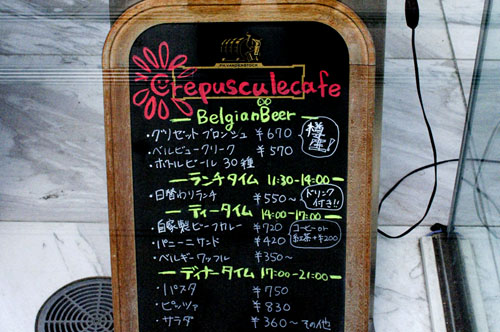 Crepusculecafe
BelgianBeer
・グリゼットブロンシュ ¥670
・ベルビュークリーク ¥570
樽生!
・ボトルビール 30種
ランチタイム 11:30-14:00
・日替わりランチ ¥550~
ドリンク付き!!
ティータイム 14:00-17:00
・自家製ビーフカレー ¥720
・パニーニサンド ¥420
コーヒーor紅茶+¥200
・ベルギーワッフル ¥350~
ディナータイム 17:00-21:00
・パスタ ¥750
・ピッツァ ¥830
・サラダ ¥360~ その他